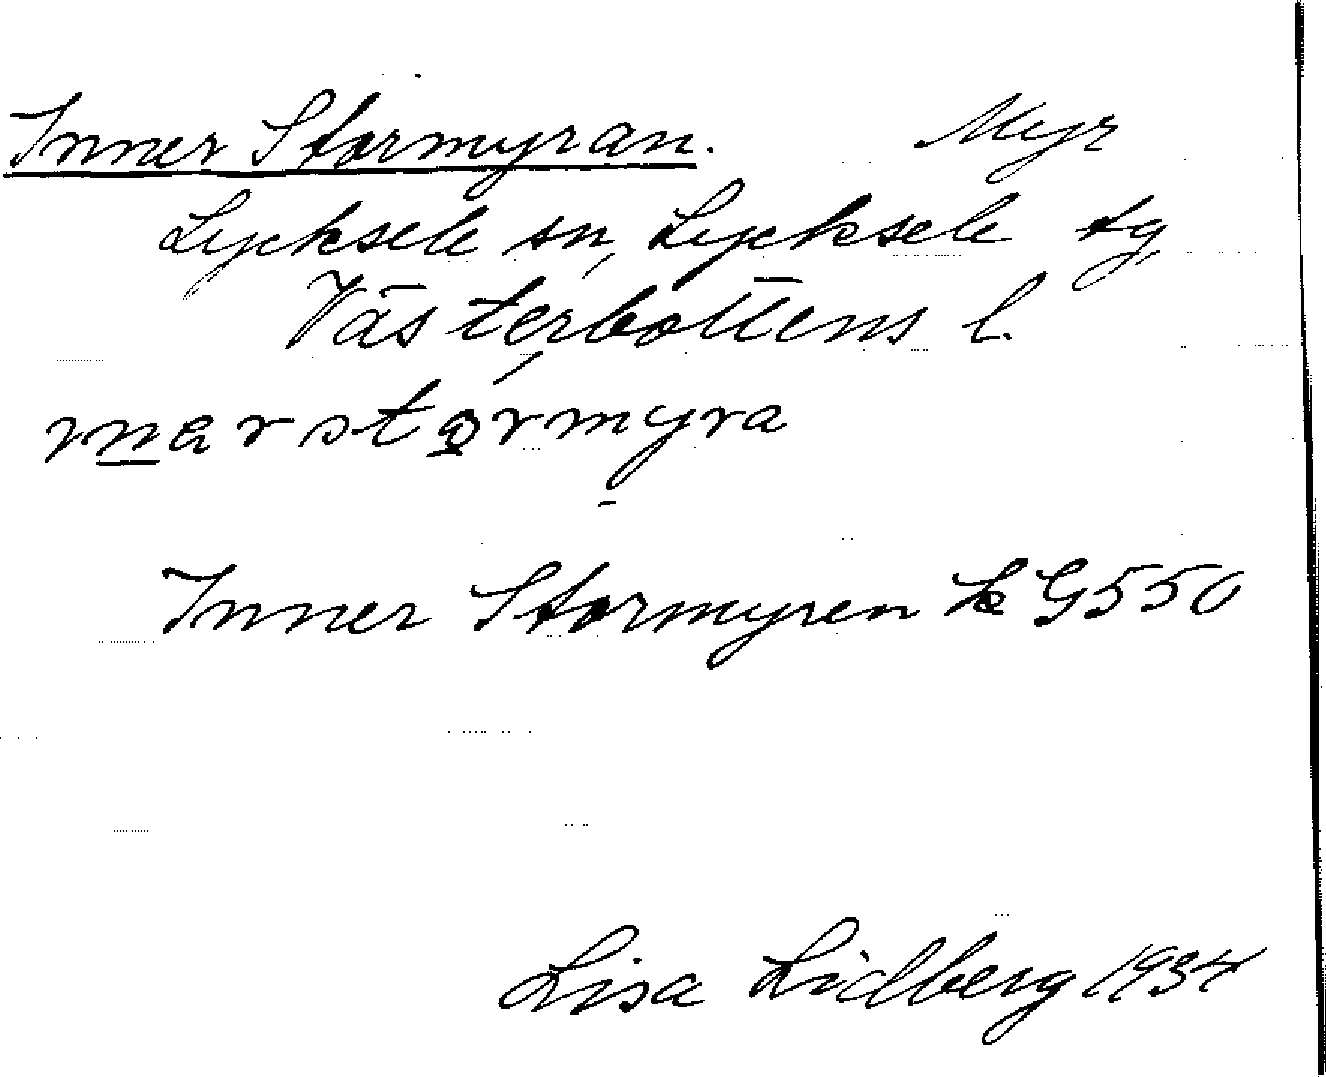 Inner Stormyran. Myr
Lycksele sn, Lycksele tg
Västerbottens l.
ınerstormyra
Inner Stormyren k G550
Lisa Lidberg 1934